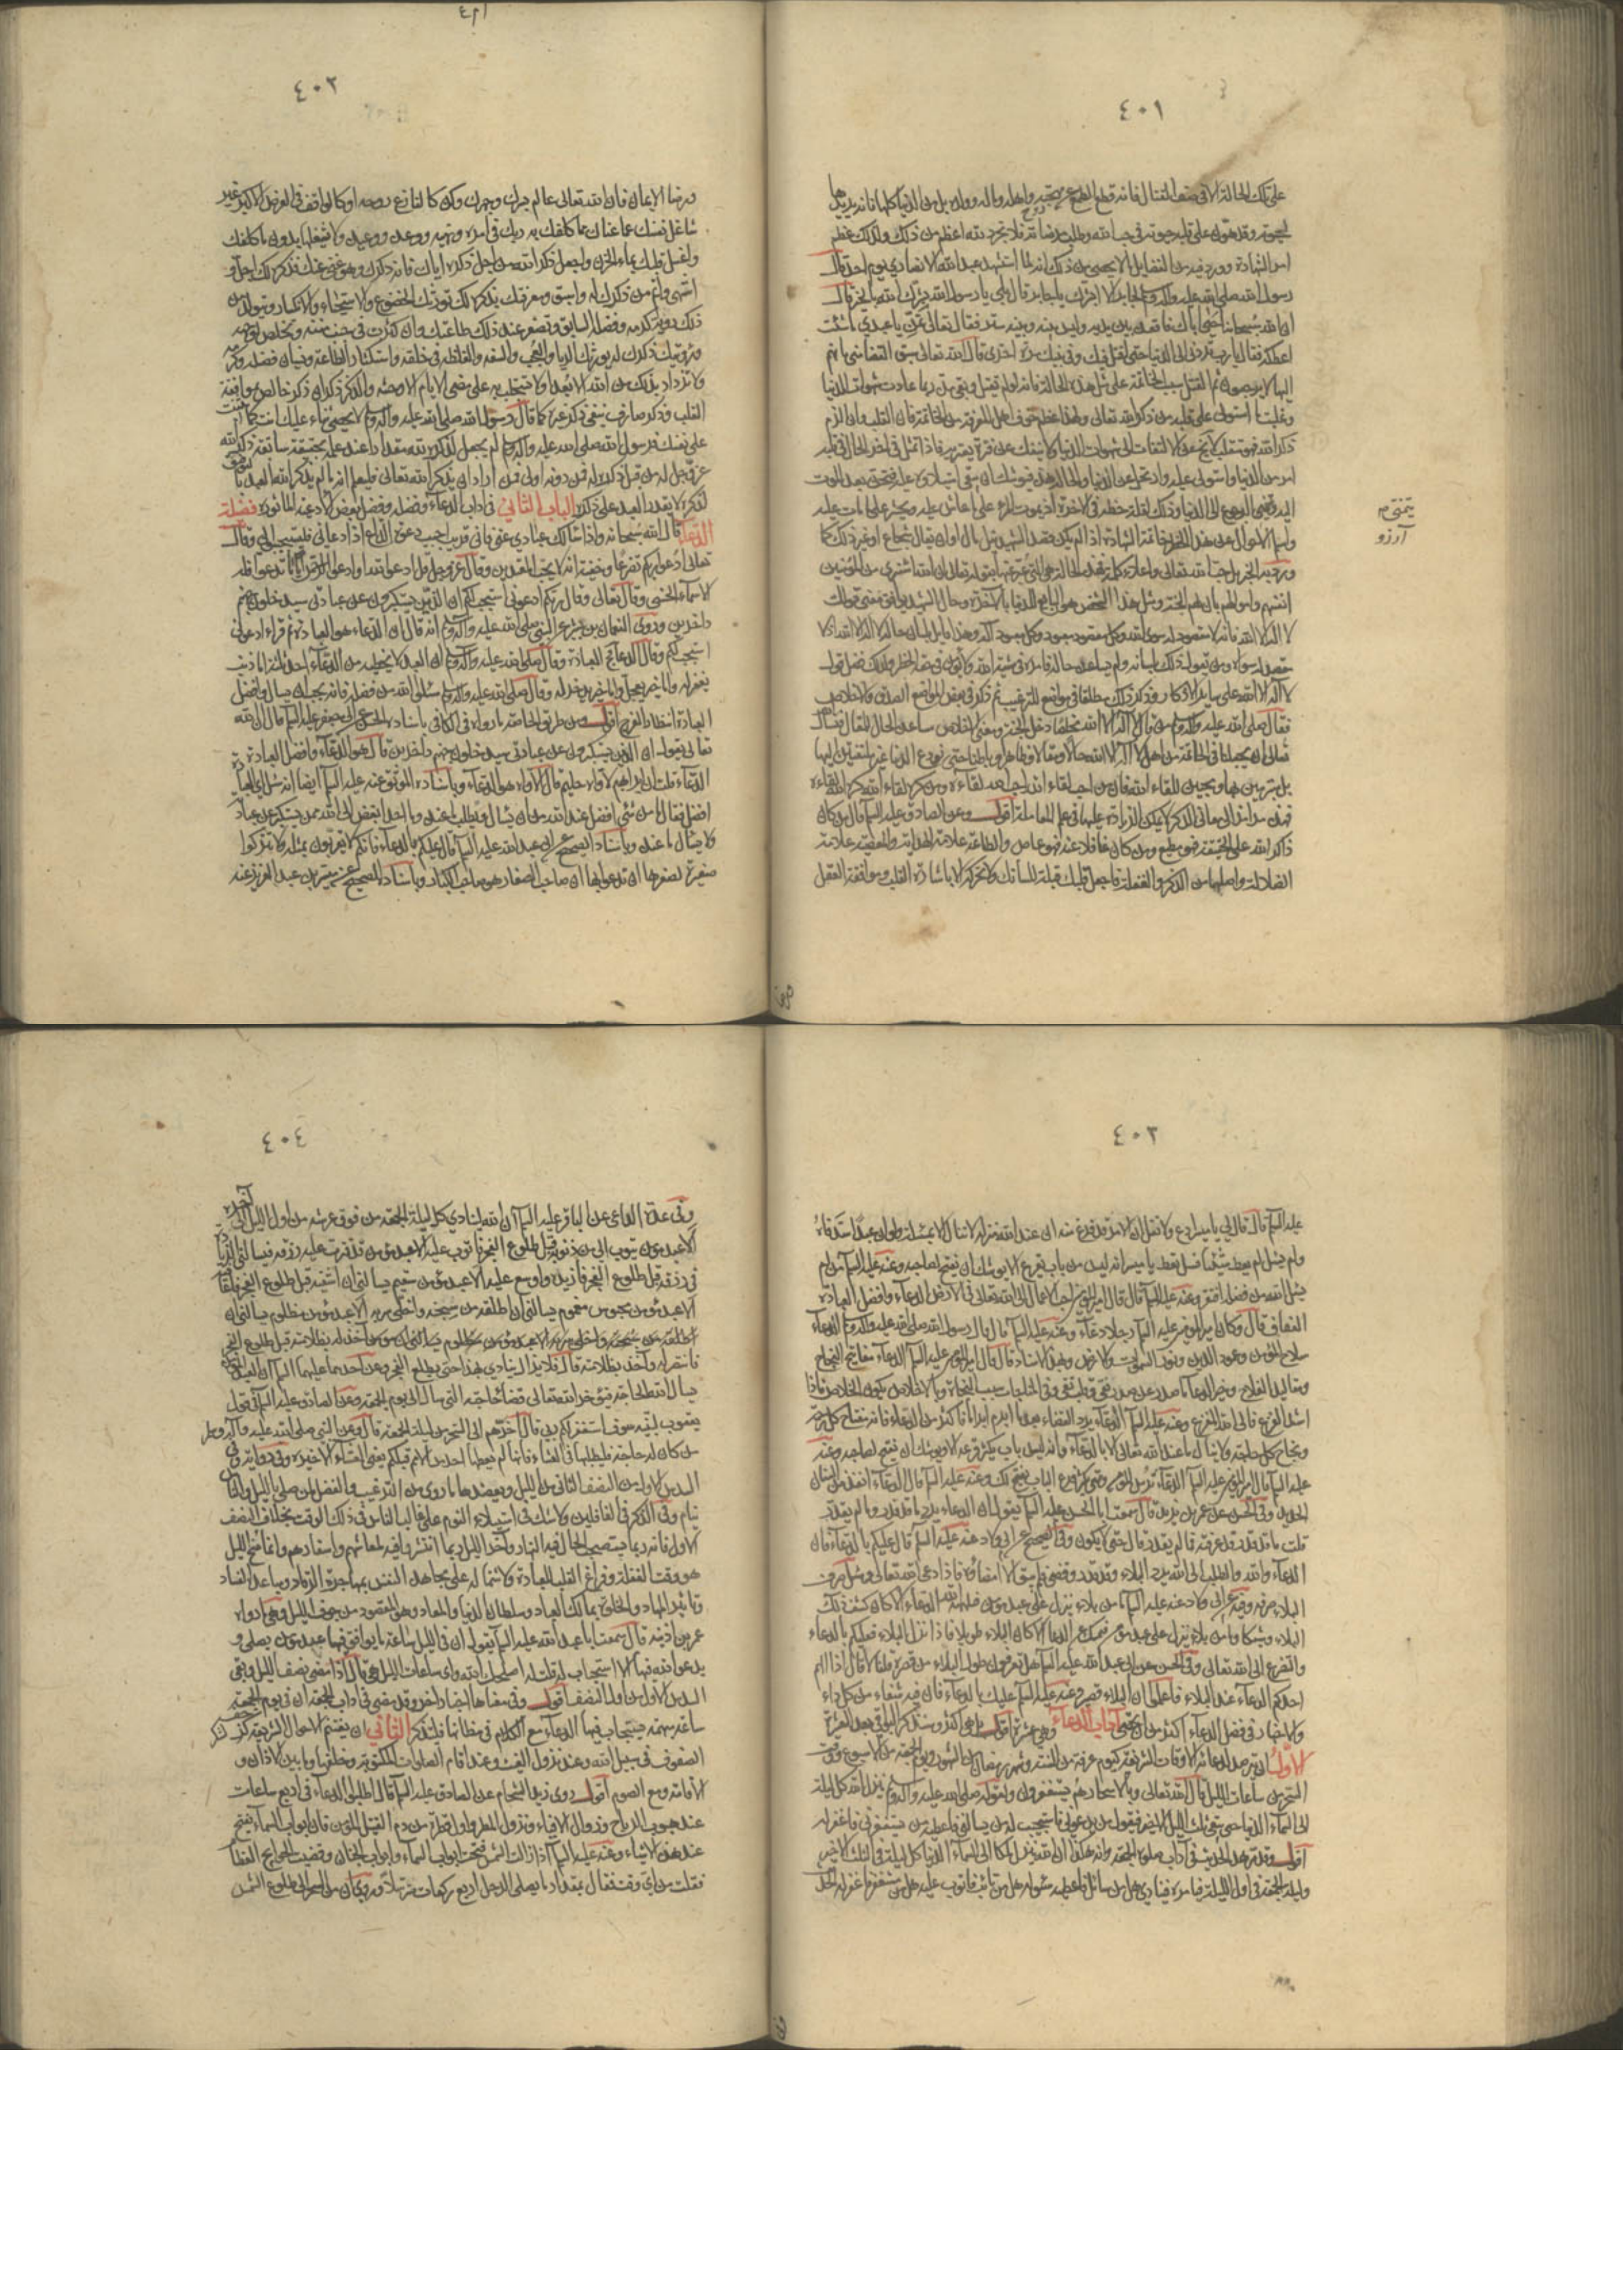 ٤٠١
على تلك الحالة الا في صف القتال فانه قطع الطمع عن مهجته واهله وماله وولده بل من الدنيا كلها فانه يريدها
لحيوته وقد هون على قلبه حيوته في حب الله وطلب مرضاته فلا تجرد لله اعظم من ذلك ولذلك عظم
امر الشهادة وورد فيه من الفضايل ما لا يحصى من ذلك انه لما استشهد عبد الله الانصاري يوم احد قال
رسول الله صلى الله عليه واله وسلم لجابر الا ابشرك يا جابر قال بلى يا رسول الله بشرك الله بالخير قال
ان الله سبحانه احيى اباك فاقعده بين يديه وليس بينه وبينه ستر فقال تعالى تمن يا عبدي ما شئت
اعطكه فقال يا رب تردني الى الدنيا حتى اقتل فيك وفي نبيك مرة اخرى قال الله تعالى سبق القضاء مني بانهم
اليها لا يرجعون ثم القتل سبب الخاتمة على مثل هذه الحالة فانه لو لم يقتل وبقي مدة ربما عادت شهوات الدنيا
وغلبت ما استولى على قلبه من ذكر الله تعالى ولهذا عظم خوف اهل المعرفة من الخاتمة فان القلب وان الزم
ذكر الله فهو متقلب لا يخ عن الالتفات الى شهوات الدنيا ولا ينفك عن فترة تعتريه فاذا تمثل في اخر الحال في قلبه
امر من الدنيا واستولى عليه وارتحل عن الدنيا والحالة هذه فيوشك ان يبقى استيلاؤه عليه فيحن بعد الموت
اليه ويتمنى الرجوع الى الدنيا وذلك لقلة حظه في الآخرة اذ يموت المرء على ما عاش عليه ويحشر على ما مات عليه
واسلم الاحوال عن هذا الخطر خاتمة الشهادة اذا لم يكن قصد الشهيد نيل مال او ان يقال شجاع او غير ذلك كما
ورد به الخبر بل حب الله تعالى واعلاء كلمته فهذه الحالة هي التي عبر عنها بقوله تعالى ان الله اشترى من المؤمنين
انفسهم واموالهم بان لهم الجنة ومثل هذا الشخص هو البايع للدنيا بالآخرة وحال الشهيد يوافق معنى قولك
لا اله الا الله فانه لا مقصود له سوى الله وكل مقصود معبود وكل معبود اله وهذا قايل بلسان حاله لا اله الا الله اذ لا
مقصد له سواه ومن يقول ذلك بلسانه ولم يساعده حاله فامره في مشية الله ولا يؤمن في حقه الخطر ولذلك فضل قول
لا اله الا الله على سائر الاذكار وقد ذكر ذلك مطلقا في مواضع للترغيب ثم ذكر في بعض المواضع الصدق والاخلاص
فقال صلى الله عليه واله وسلم من قال لا اله الا الله مخلصا دخل الجنة ومعنى الاخلاص مساعدة الحال للمقال فنسال الله
تعالى ان يجعلنا في الخاتمة من اهل لا اله الا الله حالا ومقالا وظاهرا وباطنا حتى نودع الدنيا غير ملتفتين اليها
بل متبرمين بها ومحبين للقاء الله فان من احب لقاء الله احب الله لقاءه ومن كره لقاء الله كره الله لقاءه
فهذه مرامز الى معاني الذكر لا يمكن الزيادة عليها في علم المعاملة اقول وعن الصادق عليه السلام قال من كان
ذاكرا لله على الحقيقة فهو مطيع ومن كان غافلا عنه فهو عاص والطاعة علامة الهداية والمعصية علامة
الضلالة واصلهما من الذكر والغفلة فاجعل قلبك قبلة للسانك ولا تحركه الا باشارة القلب وموافقة العقل
يتمنى م
آرزو
٤٠٢
ورضا الايمان فان الله تعالى عالم بسرك وجهرك وكن كالنازع روحه او كالواقف في العرض الاكبر غير
شاغل نفسك عما عناك مما كلفك به ربك في امره ونهيه ووعده ووعيده ولا تشغلها بدون ما كلفك
واغسل قلبك بماء الحزن واجعل ذكر الله من اجل ذكره اياك فانه ذكرك وهو غني عنك فذكره لك اجل و
اشهى واتم من ذكرك له واسبق ومعرفتك بذكره لك تورثك الخضوع والاستحياء والانكسار ويتولد من
ذلك رؤية كرمه وفضله السابق وتصغر عند ذلك طاعتك وان كثرت في جنب مننه وتخلص لوجهه
ورؤيتك ذكرك له يورثك الريا والعجب والسفه والغلظة في خلقه واستكثار الطاعة ونسيان فضله وكرمه
ولا تزداد بذلك من الله الا بعدا ولا تستجلب به على مضي الايام الا وحشة والذكر ذكران ذكر خالص بموافقة
القلب وذكر صارف ينفي ذكر غيره كما قال رسول الله صلى الله عليه واله وسلم لا احصي ثناء عليك انت كما اثنيت
على نفسك فرسول الله صلى الله عليه واله وسلم لم يجعل لذكره لله مقدارا عند علمه بحقيقة سابقة ذكر الله
عز وجل له من قبل ذكره له فمن دونه اولى فمن اراد ان يذكر الله تعالى فليعلم انه ما لم يذكر الله العبد بالتوفيق
لذكره لا يقدر العبد على ذكره الباب الثاني في اداب الدعاء وفضله وفضل بعض الادعية المأثورة فضيلة
الدعاء قال الله سبحانه واذا سالك عبادي عني فاني قريب اجيب دعوة الداع اذا دعاني فليستجيبوا لي وقال
تعالى ادعوا ربكم تضرعا وخفية انه لا يحب المعتدين وقال عز وجل قل ادعوا الله او ادعوا الرحمن ايا ما تدعوا فله
الاسماء الحسنى وقال تعالى وقال ربكم ادعوني استجب لكم ان الذين يستكبرون عن عبادتي سيدخلون جهنم
داخرين وروى النعمان بن بشير عن النبي صلى الله عليه واله وسلم انه قال ان الدعاء هو العبادة ثم قرأ ادعوني
استجب لكم وقال الدعاء مخ العبادة وقال صلى الله عليه واله وسلم ان العبد لا يخطيه من الدعاء احد ثلث اما ذنب
يغفر له واما خير يعجل واما خير يدخر له وقال صلى الله عليه واله وسلم سلوا الله من فضله فانه يحب ان يسال وافضل
العبادة انتظار الفرج اقول ومن طريق الخاصة ما رواه في الكافي باسناده الحسن عن ابي جعفر عليه السلام قال ان الله
تعالى يقول ان الذين يستكبرون عن عبادتي سيدخلون جهنم داخرين قال هو الدعاء وافضل العبادة
الدعاء قلت ان ابراهيم لاواه حليم قال الاواه هو الدعاء وباسناده الموثق عنه عليه السلام ايضا انه سئل اي العبادة
افضل فقال ما من شيء افضل عند الله من ان يسال ويطلب ما عنده وما احد ابغض الى الله ممن يستكبر عن عبادته
ولا يسال ما عنده وباسناده الصحيح عن ابي عبد الله عليه السلام قال عليكم بالدعاء فانكم لا تقربون بمثله ولا تتركوا
صغيرة لصغرها ان تدعوا بها ان صاحب الصغار هو صاحب الكبار وباسناده الصحيح عن ميسر بن عبد العزيز عنه
٤٠٣
عليه السلام قال قال لي يا ميسر ادع ولا تقل ان الامر قد فرغ منه ان عند الله منزلة لا تنال الا بمسئلة ولو ان عبدا سد فاه
ولم يسئل لم يعط شيئا فسل تعط يا ميسر انه ليس من باب يقرع الا يوشك ان يفتح لصاحبه وعنه عليه السلام من لم
يسئل الله من فضله افتقر وعنه عليه السلام قال قال امير المؤمنين احب الاعمال الى الله تعالى في الارض الدعاء وافضل العبادة
العفاف قال وكان امير المؤمنين عليه السلام رجلا دعاء وعنه عليه السلام قال قال رسول الله صلى الله عليه واله وسلم الدعاء
سلاح المؤمن وعمود الدين ونور السموات والارض وبهذا الاسناد قال قال امير المؤمنين عليه السلام الدعاء مفاتيح النجاح
ومقاليد الفلاح وخير الدعاء ما صدر عن صدر نقي وقلب تقي وفي المناجات سبب النجاة وبالاخلاص يكون الخلاص فاذا
اشتد الفزع فالى الله المفزع وعنه عليه السلام الدعاء يرد القضاء بعد ما ابرم ابراما فاكثر من الدعاء فانه مفتاح كل رحمة
ونجاح كل حاجة ولا ينال ما عند الله تعالى الا بالدعاء وانه ليس باب يكثر قرعه الا ويوشك ان يفتح لصاحبه وعنه
عليه السلام قال امير المؤمنين عليه السلام الدعاء ترس المؤمن ومتى تكثر قرع الباب يفتح لك وعنه عليه السلام قال الدعاء انفذ من السنان
الحديد وفي الحسن عن عمر بن يزيد قال سمعت ابا الحسن عليه السلام يقول ان الدعاء يرد ما قد قدر وما لم يقدر
قلت ما قد قدر قد عرفته فما لم يقدر قال حتى لا يكون وفي الصحيح عن ابي ولاد عنه عليه السلام قال عليكم بالدعاء فان
الدعاء والله والطلب الى الله يرد البلاء وقد قدر وقضي ولم يبق الا امضاؤه فاذا دعي الله تعالى وسئل صرف
البلاء صرفه وفيه عن ابي ولاد عنه عليه السلام ما من بلاء ينزل على عبد مؤمن فيلهمه الله الدعاء الا كان كشف ذلك
البلاء وشيكا وما من بلاء ينزل على عبد مؤمن فيمسك عن الدعاء الا كان البلاء طويلا فاذا نزل البلاء فعليكم بالدعاء
والتضرع الى الله تعالى وفي الحسن عن ابي عبد الله عليه السلام هل تعرفون طول البلاء من قصره قلنا لا قال اذا الهم
احدكم الدعاء عند البلاء فاعلموا ان البلاء قصير وعنه عليه السلام عليك بالدعاء فان فيه شفاء من كل داء
والاخبار في فضل الدعاء اكثر من ان تحصى آداب الدعاء وهي عشرة اقول بل هي اكثر وسنذكر البواقي بعد العشرة
الاول ان يترصد لدعائه الاوقات الشريفة كيوم عرفة من السنة وشهر رمضان من الشهور ويوم الجمعة من الاسبوع ووقت
السحر من ساعات الليل قال الله تعالى وبالاسحار هم يستغفرون ولقوله صلى الله عليه واله وسلم ينزل الله كل ليلة
الى السماء الدنيا حين يبقى ثلث الليل الاخير فيقول من يدعوني فاستجيب له من يسالني فاعطيه من يستغفرني فاغفر له
اقول وقد مر هذا الحديث في اداب صلوة الجمعة وانه هكذا ان الله ينزل ملكا الى السماء الدنيا كل ليلة في الثلث الاخير
وليلة الجمعة في اول الليل فيامره فينادي هل من سائل فاعطيه سؤله هل من تائب فاتوب عليه هل من مستغفر فاغفر له الحديث
٤٠٤
وفي عدة الداعي عن الباقر عليه السلام ان الله لينادي كل ليلة الجمعة من فوق عرشه من اول الليل الى آخره
الا عبد مؤمن يتوب الي من ذنوبه قبل طلوع الفجر فاتوب عليه الا عبد مؤمن قد قترت عليه رزقه فيسالني الزيادة
في رزقه قبل طلوع الفجر فازيده واوسع عليه الا عبد مؤمن سقيم يسالني ان اشفيه قبل طلوع الفجر فاعافيه
الا عبد مؤمن محبوس مغموم يسالني ان اطلقه من سجنه واخلي سربه الا عبد مؤمن مظلوم يسالني ان
آخذ له بظلامته قبل طلوع الفجر
فانتصر له وآخذ بظلامته قال فلا يزال ينادي بهذا حتى يطلع الفجر وعن احدهما عليهما السلام ان العبد المؤمن
يسال الله الحاجة فيؤخر الله تعالى قضاء حاجته التي سال الى يوم الجمعة وعن الصادق عليه السلام في قول
يعقوب لبنيه سوف استغفر لكم ربي قال اخرهم الى السحر من ليلة الجمعة قال وعن النبي صلى الله عليه وآله وسلم
من كان له حاجة فليطلبها في العشاء فانها لم يعطها احد من الامم قبلكم يعني العشاء الاخيرة وفي رواية في
السدس الاول من النصف الثاني من الليل ويعضدها ما روي من الترغيب والفضل لمن صلى بالليل والناس
نيام وفي الذكر في الغافلين ولا شك في استيلاء النوم على غالب الناس في ذلك الوقت بخلاف النصف
الاول فانه ربما يستصحب الحال فيه النهار وآخر الليل ربما انتشروا فيه لمعائشهم واسفارهم وانما مخ الليل
هو وقت الغفلة وفراغ القلب للعبادة ولاشتماله على مجاهدة النفس بمهاجرة الرقاد ومباعدة الفساد
وتاثير المهاد والخلوة بمالك العباد وسلطان الدنيا والمعاد وهو المقصود من جوف الليل وهي ما رواه
عمر بن اذينة قال سمعت ابا عبد الله عليه السلام يقول ان في الليل ساعة ما يوافق فيها عبد مؤمن يصلي و
يدعو الله فيها الا استجاب له قلت له اصلحك الله واي ساعات الليل هي قال اذا مضى نصف الليل وبقي
السدس الاول من اول النصف اقول وفي معناها اخبار اخر وقد مضى في اداب الجمعة ان في يوم الجمعة
ساعة مبهمة يستجاب فيها الدعاء مع الكلام في مظانها فليتذكر الثاني ان يغتنم الاحوال الشريفة كزحف
الصفوف في سبيل الله وعند نزول الغيث وعند اقام الصلوات المكتوبة وخلفها وما بين الاذان و
الاقامة ومع الصوم اقول روى زيد الشحام عن الصادق عليه السلام قال اطلبوا الدعاء في اربع ساعات
عند هبوب الرياح وزوال الافياء ونزول المطر واول قطرة من دم القتيل المؤمن فان ابواب السماء تفتح
عند هذه الاشياء وعنه عليه السلام اذا زالت الشمس فتحت ابواب السماء وابواب الجنان وقضيت الحوايج العظام
فقلت من اي وقت فقال بمقدار ما يصلي الرجل اربع ركعات مترسلا وكان من السحر الى طلوع الشمس